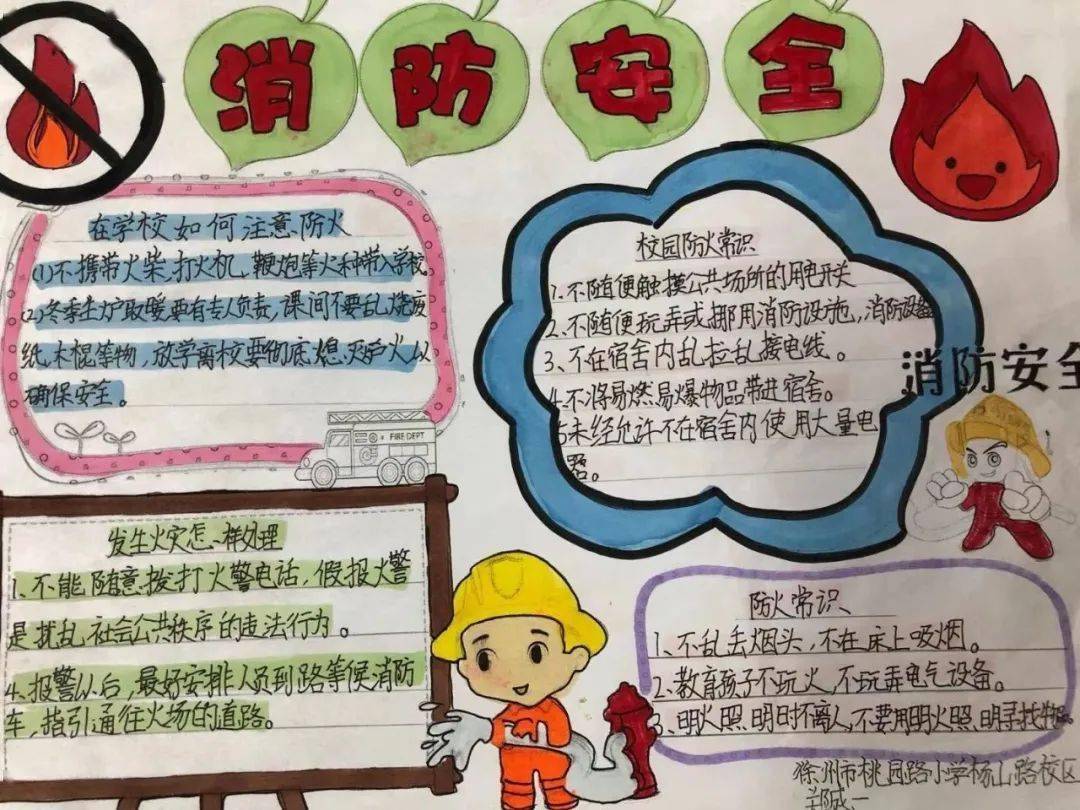 消防安全
在学校如何注意防火
(1)不携带火柴、打火机、鞭炮等火种带入学校。
(2)冬季生炉取暖要有专人负责,课间不要乱烧废
纸、木棍等物,放学离校要彻底熄灭炉火以
确保安全。
FIRE DEPT
校园防火常识
1、不随便触摸公共场所的用电开关
2、不随便玩弄或挪用消防设施,消防设备
3、不在宿舍内乱拉乱接电线。
4、不将易燃易爆物品带进宿舍。
5未经允许不在宿舍内使用大量电
器。
消防安全
发生火灾怎样处理
1、不能随意拨打火警电话,假报火警
是扰乱社会公共秩序的违法行为。
4、报警以后,最好安排人员到路等候消防
车,指引通往火场的道路。
防火常识、
1、不乱丢烟头,不在床上吸烟。
2、教育孩子不玩火,不玩弄电气设备。
3、明火照明时不离人,不要用明火照明寻找物品。
徐州市桃园路小学杨山路校区